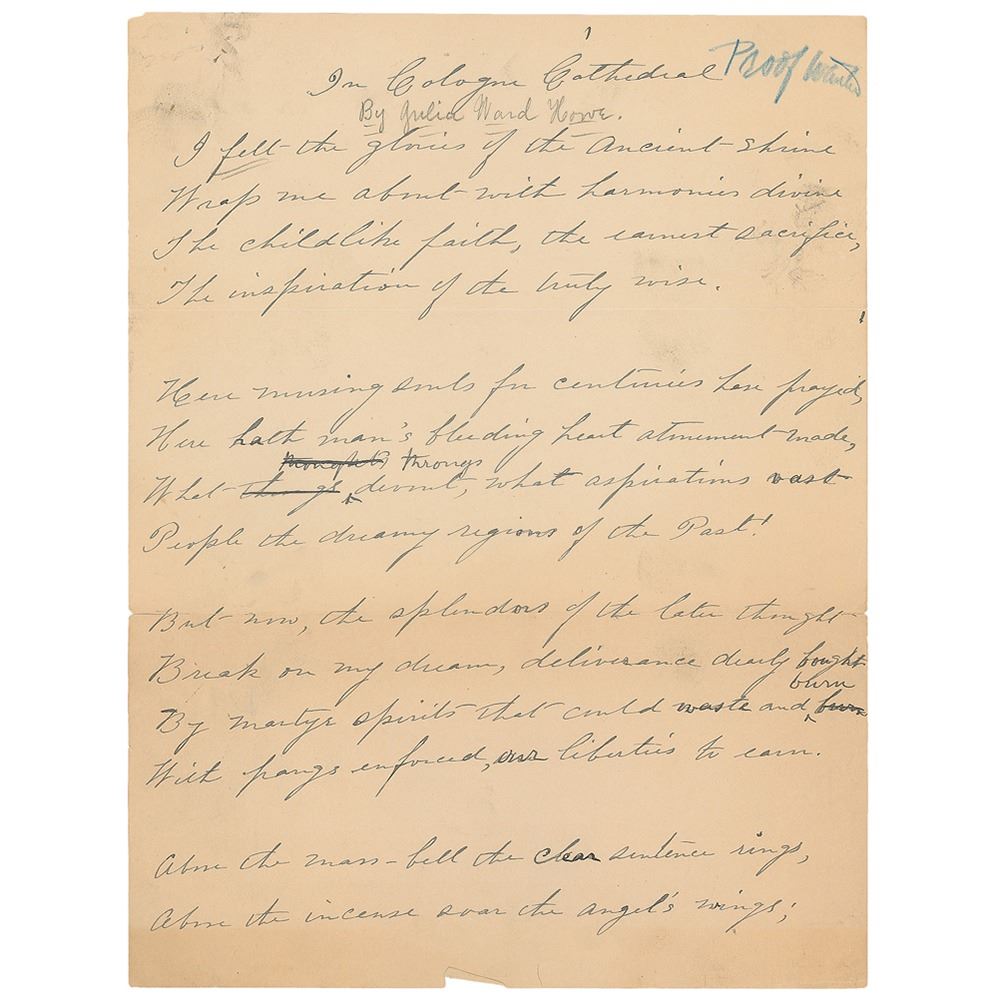 In Cologne Cathedral Proof Wanted
By Julia Ward Howe.
I felt the glories of the ancient shrine
Wrap me about with harmonies divine
The childlike faith, the earnest sacrifice,
The inspiration of the truly wise.
Here musing souls for centuries have prayed,
Here hath man's bleeding heart atonement made,
thoughts throngs
What things devout, what aspirations vast
People the dreamy regions of the Past!
But now, the splendors of the later thought
Break on my dream, deliverance dearly bought
burn
By martyr spirits that could waste and burn
With pangs enforced, our liberties to earn.
Above the mass-bell the clear sentence rings,
Above the incense soar the angel's wings;